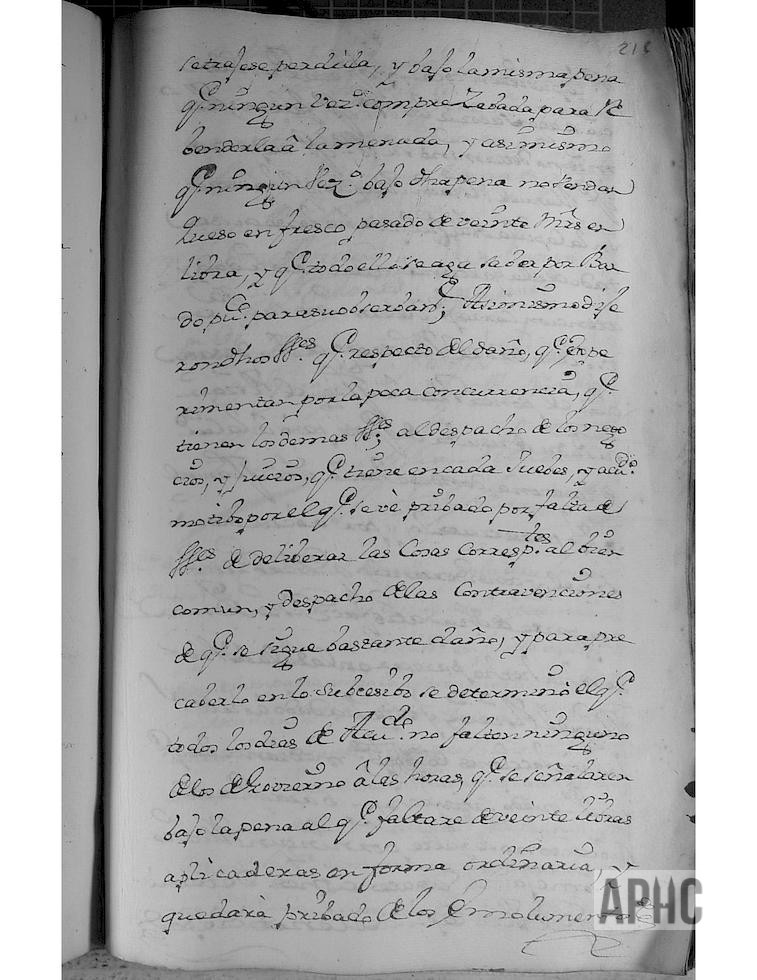 218
setrajese perdida, y bajo la misma pena
q.e ningun vez.º Compre Zebada para Re
benderla â la menuda, y asimismo
q.e ningun Vez.º bajo dha pena no Venda
queso en fresco pasado de veinte Mrs en
libra, y q.e todo ello se aga saber por Ban
do pu.co para su obserban.ª Asimismo dije
ron dhos SS.res q.e respecto del daño, q.e expe
rimentan por la poca concurrencia, q.e
tienen los demas SS.res al despacho de los nego
cios, y Juicios, q.e tiene en cada Juebes, y acu.do
motibo por el q.e se vè pribado por falta de
SS.res de deliberar las Cosas Corresp.tes al bien
comun, y despacho de las Contravenciones
de q.e se sigue bastante daño, y para pre
caberlo en lo Subcesibo se determinò el q.e
todos los dias de Acu.do no falten ninguno
de los de Govierno â las horas, q.e se señalaren
bajo la pena al q.e faltare de veinte libras
aplicaderas en forma ordinaria, y
quedarà pribado de los Emolumentos
APHC